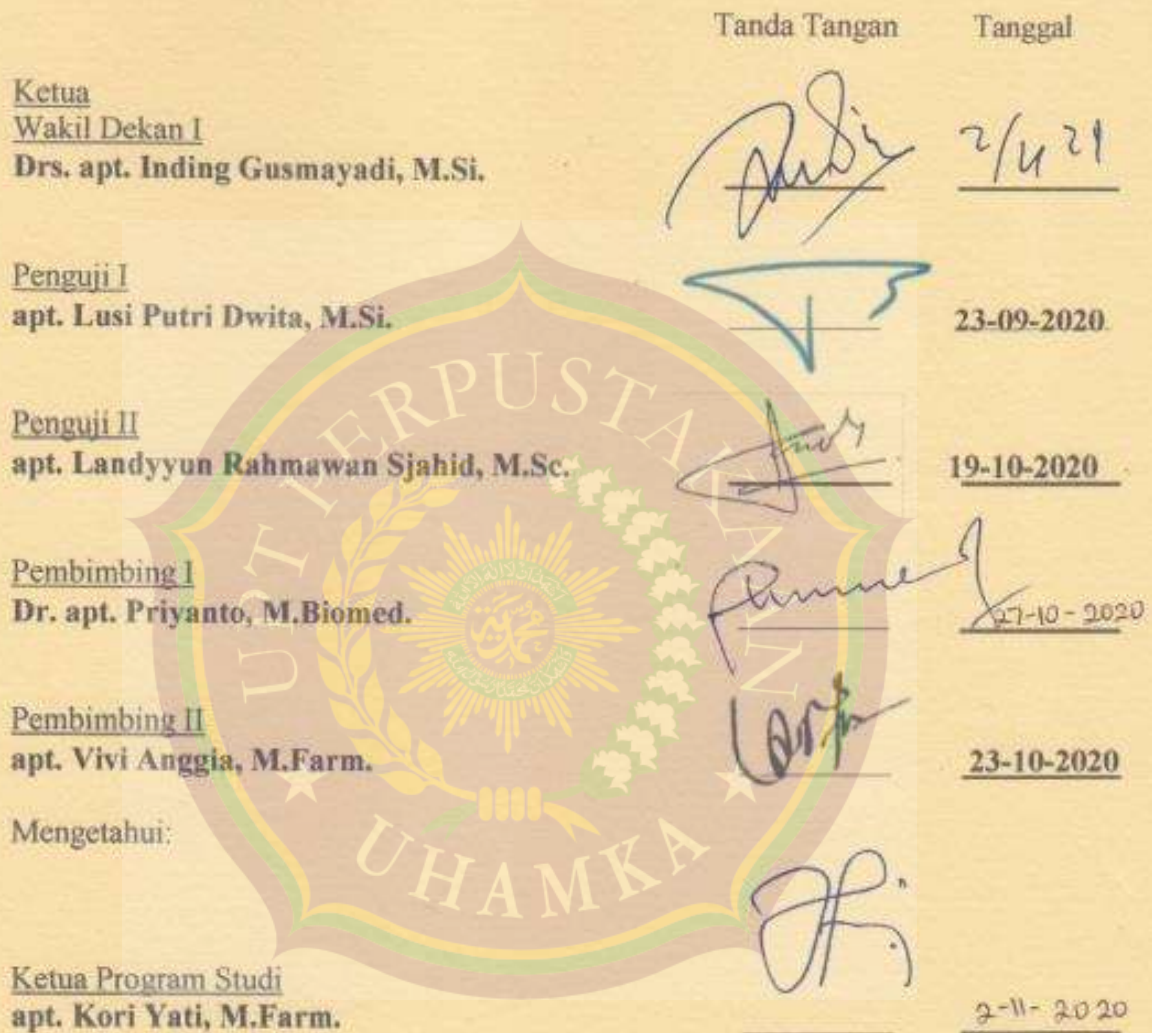 Tanda Tangan Tanggal
Ketua
Wakil Dekan I
Drs. apt. Inding Gusmayadi, M.Si.
2/4 21
Penguji I
apt. Lusi Putri Dwita, M.Si.
23-09-2020
Penguji II
apt. Landyyun Rahmawan Sjahid, M.Sc.
19-10-2020
Pembimbing I
Dr. apt. Priyanto, M.Biomed.
27-10-2020
Pembimbing II
apt. Vivi Anggia, M.Farm.
23-10-2020
Mengetahui:
Ketua Program Studi
apt. Kori Yati, M.Farm.
2-11-2020
UPT PERPUSTAKAAN
UHAMKA
محمد